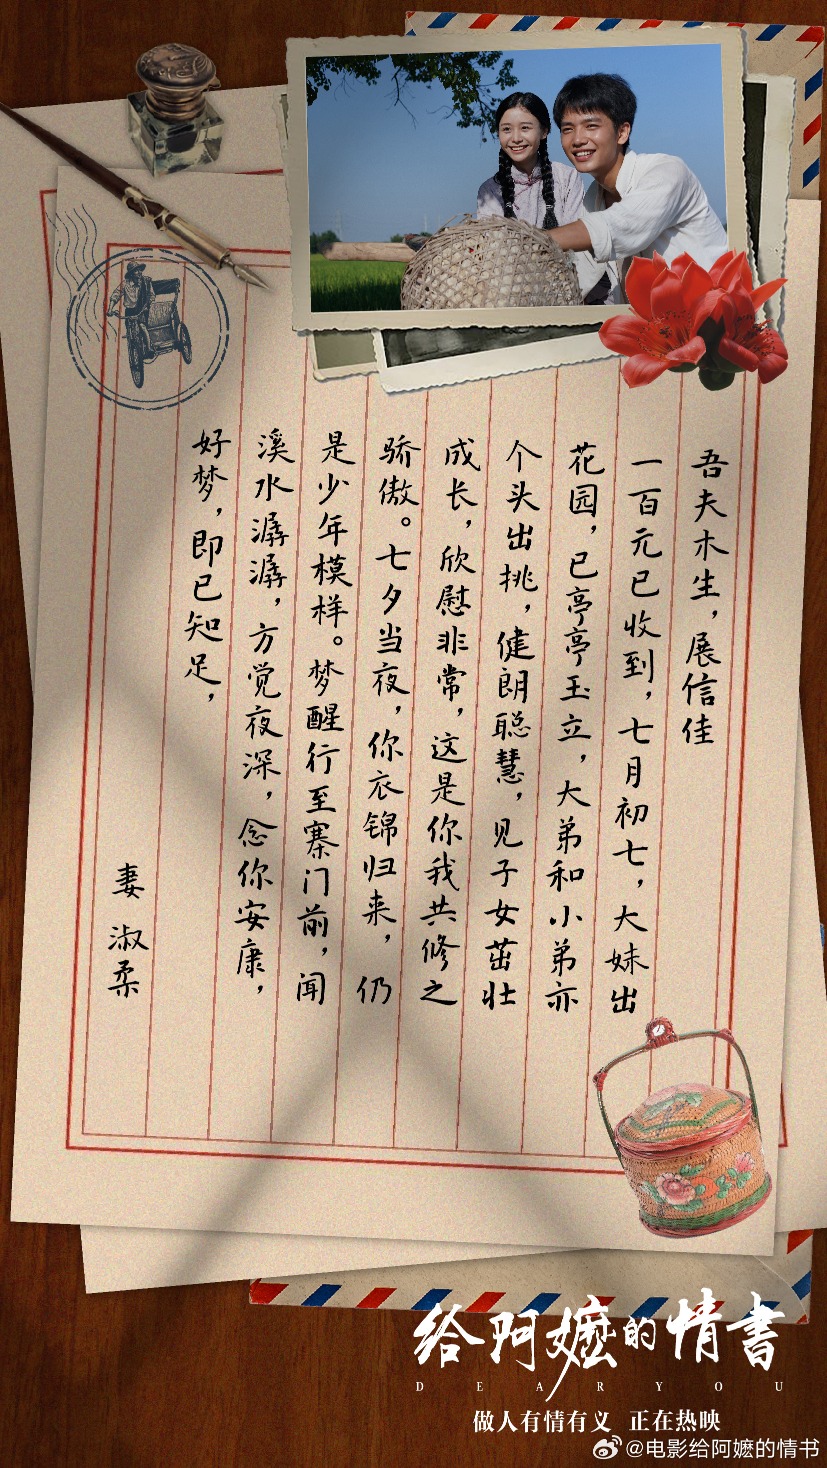 吾夫木生，展信佳
一百元已收到，七月初七，大妹出
花园，已亭亭玉立，大弟和小弟亦
个头出挑，健朗聪慧，见子女茁壮
成长，欣慰非常，这是你我共修之
骄傲。七夕当夜，你衣锦归来，仍
是少年模样。梦醒行至寨门前，闻
溪水潺潺，方觉夜深，念你安康，
好梦，即已知足，
妻 淑柔
给阿嬷的情書
DEAR YOU
做人有情有义 正在热映
@电影给阿嬷的情书